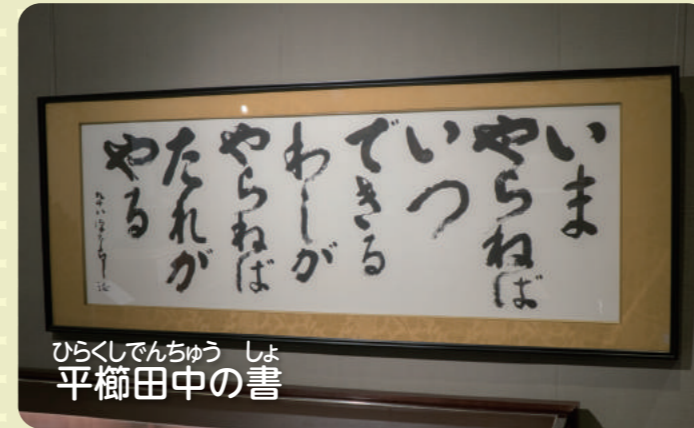 いま
やらねば
いつ
できる
わしが
やらねば
たれが
やる
ひらくしでんちゅう しょ
平櫛田中の書